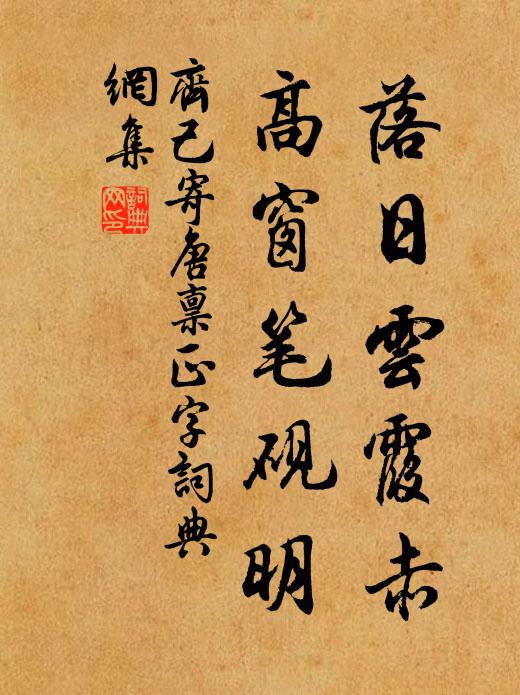 落日雲霞赤
高窗笔硯明
齊己寄唐禀正字詞典
網集
詞典
网印